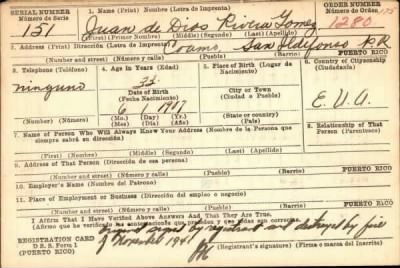 SERIAL NUMBER
Número de Serie
151
1. Name (Print) Nombre (Letra de Imprenta)
Juan de Dios Rivera Gomez
(First) (Primer Nombre) (Middle) (Segundo) (Last) (Apellido)
ORDER NUMBER
Número de Orden
1280
175
2. Address (Print) Dirección (Letra de Imprenta)
Coamo San Ildefonso P.R.
Number and street) (Número y calle) (Town) (Pueblo) PUERTO RICO
3. Telephone (Teléfono)
ninguno
(Number) (Número)
4. Age in Years (Edad)
33
Date of Birth
(Fecha Nacimiento)
6 1 1907
(Mo.) (Day) (Yr.)
(Mes) (Día) (Año)
5. Place of Birth (Lugar de Nacimiento)
City or Town
(Ciudad o Pueblo)
(State or country)
(País)
6. Country of Citizenship
(Ciudadanía)
E.U.A.
7. Name of Person Who Will Always Know Your Address (Nombre de la Persona que siempre sabrá en dirección)
(First) (Primer Nombre) (Middle) (Segundo) (Last) (Apellido)
8. Relationship of That Person (Parentesco)
9. Address of That Person (Dirección de esa persona)
(Number and street) (Número y calle) (Town) (Pueblo) PUERTO RICO
10. Employer's Name (Nombre del Patrono)
11. Place of Employment or Business (Dirección del empleo o negocio)
(Number and street) (Número y calle) (Town) (Pueblo) PUERTO RICO
I Affirm That I Have Verified Above Answers And, That They are True.
(Afirmo que he verificado las contestaciones que preceden y que todas son correctas.
signed by registrant and destroyed by fire
REGISTRATION CARD
D. S. S. Form 1
(PUERTO RICO)
November 1941
(Registrant's signature) (Firma o marca del Inscrito)